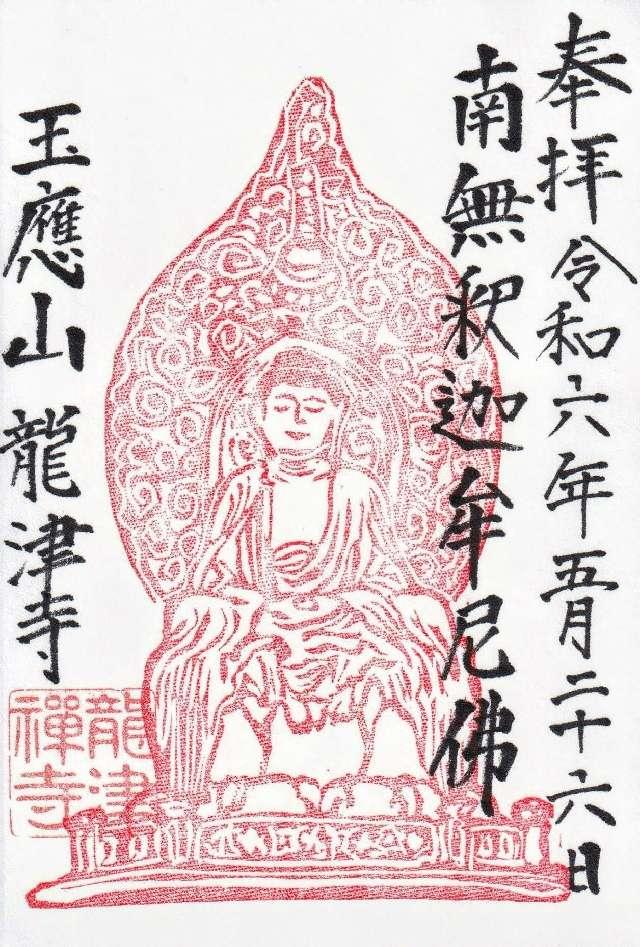 奉拝 令和六年五月二十六日
南無釈迦牟尼佛
玉應山 龍津寺
龍津
禅寺